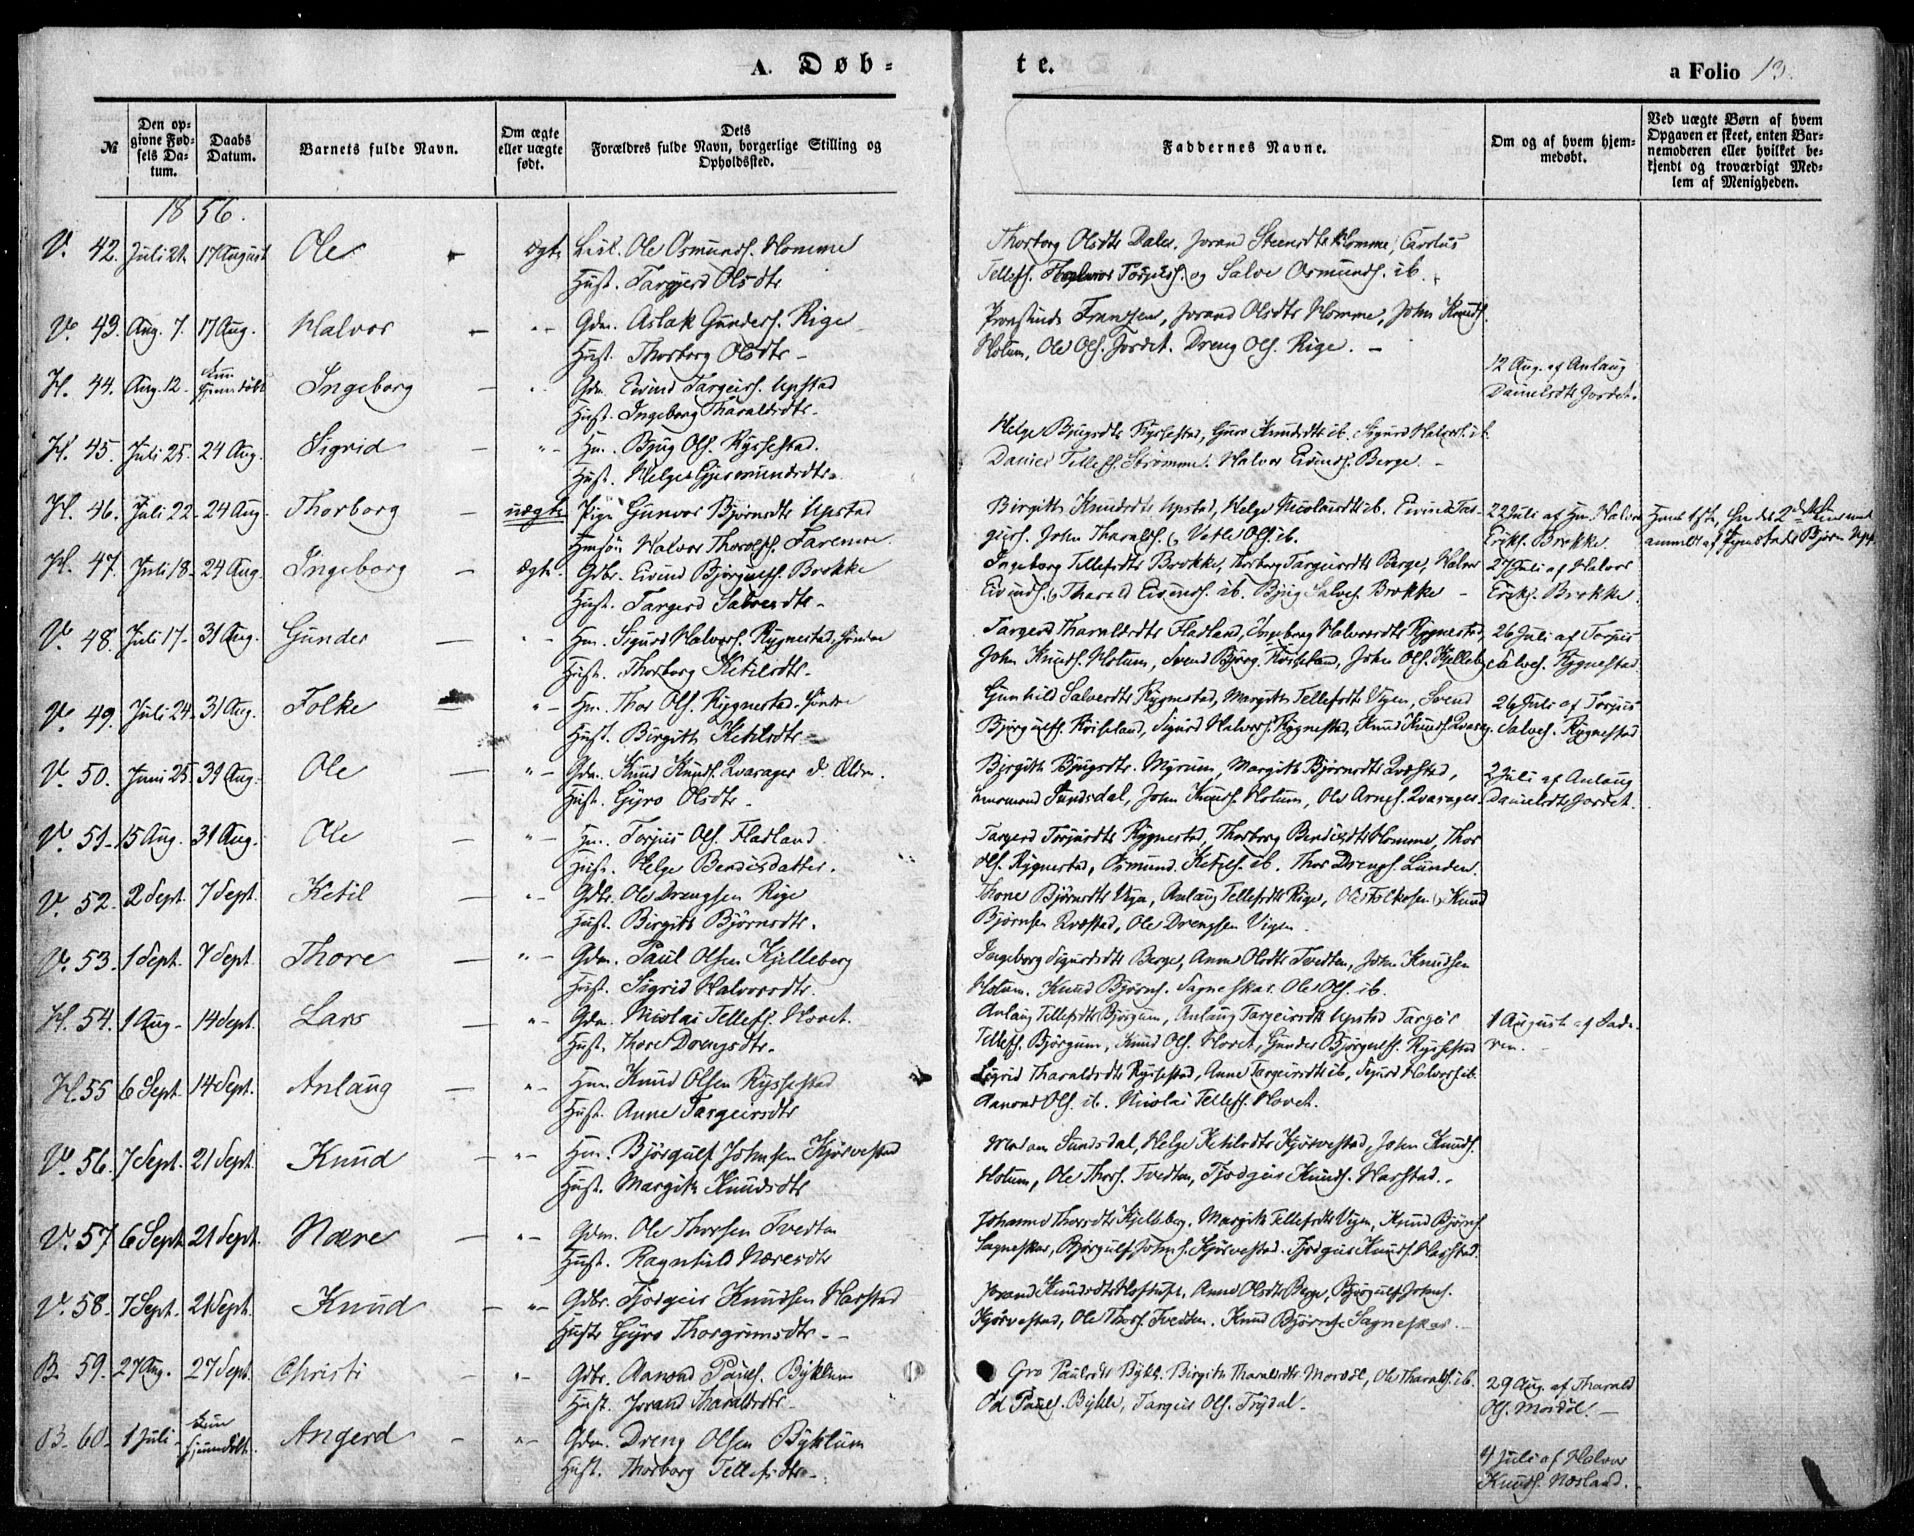 A. Døb-
te.
a Folio 13.
№
Den opgivne Fødsels Datum.
Daabs Datum.
Barnets fulde Navn.
Om ægte eller uægte født.
Dets Forældres fulde Navn, borgerlige Stilling og Opholdssted.
Faddernes Navne.
Om og af hvem hjemmedøbt.
Ved uægte Børn af hvem Opgaven er skeet, enten Barnemoderen eller hvilket bekjendt og troværdigt Medlem af Menigheden.
1856.
V. 42. Juli 21. 17 August Ole - ægte Ole Osmunds. Homme
Hust. Targjerd Olsdtr
Thorborg Olsdtr Dale, Jorand Steensdtr Homme,
Tellefs. og Salve Osmunds. ib.
V. 43. Aug. 7. 17 Aug. Halvor - "- Gdm. Aslak Gunders. Rige
Hust. Thorborg Olsdtr -
Franzen, Jorand Olsdtr Homme, John Knuds.
Holum, Ole Ols. Jordet. Dreng Ols. Rige. -
H. 44. Aug. 12. kun hjemmedøbt Ingeborg - "- Gdm. Eivind Targeirs. Upstad
Hust. Ingeborg Tharaldsdtr.
12 Aug. af Anlaug
Danielsdtr Jordet.
H. 45. Juli 25. 24 Aug. Sigrid "- Hm. Bjug Ols. Ryssestad.
Hust. Helge Gjermundsdtr.
Helge Bjugsdtr Ryssestad, Guro Knudsdtr ib. Sigurd Halvors. ib.
Daniel Tellefs. Strømme. Halvor Eivinds. Berge. -
H. 46. Juli 22 - 24 Aug. Thorborg - uægte Pige Gunvor Bjørnsdtr Upstad
Halvor Thorolfs. Farenve
Birgith Knudsdtr Upstad, Helge Nicolaisdtr ib. Eivind Tar-
geirs. John Tharalds. & Vetle Ols. ib.
22 Juli af Hm. Halvor
Eriks. Brokke.
H. 47. Juli 18 - 24 Aug. Ingeborg - ægte. Gdbr. Eivind Bjørgulfs. Brokke
Hust. Targerd Salvesdtr -
Ingeborg Tellefsdtr Brokke, Thorborg Targeirsdtr Berge, Halvor
Eivinds. & Tharald Eivinds. ib. Bjug Salves. Brokke -
27 Juli af Halvor
Eriks. Brokke.
V. 48. Juli 17 - 31 Aug. Gunder - "- Hm. Sigurd Halvors. Rygnestad, Søndre
Hust. Thorborg Ketilsdtr -
Targerd Tharaldsdtr Fladland, Ingeborg Halvorsdtr Rygnestad,
John Knuds. Holum, Svend Bjørg. Roiseland, John Ols. Kjelleberg
26 Juli af Torjus
Salves. Rygnestad
V. 49. Juli 24 - 31 Aug. Folke - "- Hm. Thor Ols. Rygnestad Søndre
Hust. Birgith Ketilsdtr -
Gunhild Salvesdtr Rygnestad, Margith Tellefsdtr Vigen, Svend
Bjørgulfs. Roiseland, Sigurd Halvors. Rygnestad, Knud Knuds. Kvarag.
26 Juli af Torjus
Salves. Rygnestad
V. 50. Juni 25. 31 Aug. Ole - "- Gdm. Knud Knuds. Kvarager d. Æld.
Hust. Gyro Olsdtr -
Birgith Bjugsdtr. Myrum, Margith Bjørnsdtr Kvæstad,
Sundsdal, John Knuds. Holum, Ole Arnes. Kvarager.
2 Juli af Anlaug
Danielsdtr Jordet.
V. 51. 15 Aug. 31 Aug. Ole - "- Hm. Torjus Ols. Fladland.
Hust. Helge Bendixdatter.
Targerd Torjusdtr Rygnestad, Thorborg Bendixdtr Homme, Thor
Ols. Rygnestad, Osmund Ketils. ib. Thor Drengs. Lunden.
V. 52. 2 Sept. 7 Sept. Ketil - "- Gdbr. Ole Drengsen Rige
Hust. Birgith Bjørnsdtr.
Thone Bjørnsdtr Vigen, Anlaug Tellefsdtr Rige, Ole Folkesen & Knud
Bjørnsen Kvæstad, Ole Drengsen Vigen.
V. 53. 1 Sept. 7 Sept. Thore - "- Gdm. Paul Olsen Kjelleberg
Hust. Sigrid Halvorsdtr.
Ingeborg Sigurdsdtr Berge, Anne Olsdtr Tvedten, John Knudsen
Holum. Knud Bjørns. Sagneskar. Ole Ols. ib.
H. 54. 1 Aug - 14 Sept. Lars - "- Gdm. Nicolai Tellefs. Hovet.
Hust. Thore Drengsdtr.
Anlaug Tellefsdtr Bjørgum, Anlaug Targeirsdtr Upstad Targeir
Tellefs. Bjørgum, Knud Ols. Hovet, Gunder Bjørgulfs. Ryssestad
1 August af Fade-
ren.
H. 55 6 Sept. 14 Sept. Anlaug - "- Hm. Knud Olsen Ryssestad
Hust. Anne Targeirsdtr
Sigrid Tharaldsdtr Ryssestad, Anne Targeirsdtr ib, Sigurd Halvors. ib.
Aanond Ols. ib. Nicolai Tellefs. Hovet.
V. 56. 7 Sept. 21 Sept. Knud - "- Hm. Bjørgulf Johnsen Kjørvestad
Hust. Margith Knudsdtr
Madam Sundsdal, Helge Ketilsdtr Kjørvestad, John Knuds.
Holum, Ole Thors. Tvedten, Tjodgeir Knuds. Harstad.
V. 57 6 Sept. 21 Sept. Nære - "- Gdm. Ole Thorsen Tvedten
Hust. Ragnhild Næresdtr
Johanne Thorsdtr Kjelleberg, Margith Tellefsdtr Vigen, Knud Bjørns.
Sagneskar, Bjørgulf Johns. Kjørvestad. Tjodgeir Knuds. Harstad.
V. 58. 7 Sept. 21 Sept. Knud - "- Gdbr. Tjodgeir Knudsen Harstad
Hustr Gyro Thorgrimsdtr. -
Jorand Knudsdtr, Anne Olsdtr Berge, Bjørgulf Johns.
Kjørvestad, Ole Thors. Tvedten. Knud Bjørns. Sagneskar.
B. 59. 27 Aug. 27 Sept. Christi - "- Gdbr. Aanond Pauls. Byklum
Hust. Jorand Tharaldsdtr -
Gro Paulsdtr Bykle. Birgith Tharaldsdtr Mosdøl, Ole Tharalds. ib.
Od Pauls. Bykle, Targeir Ols. Trydal.
29 Aug. af Tharald
Ols. Mosdøl. -
B. 60. 1 Juli - kun hjemmedøbt. Angerd - "- Gdm. Dreng Olsen Byklum
Hust. Thorborg Tellefsdtr -
4 Juli af Halvor
Knuds. Næsland.